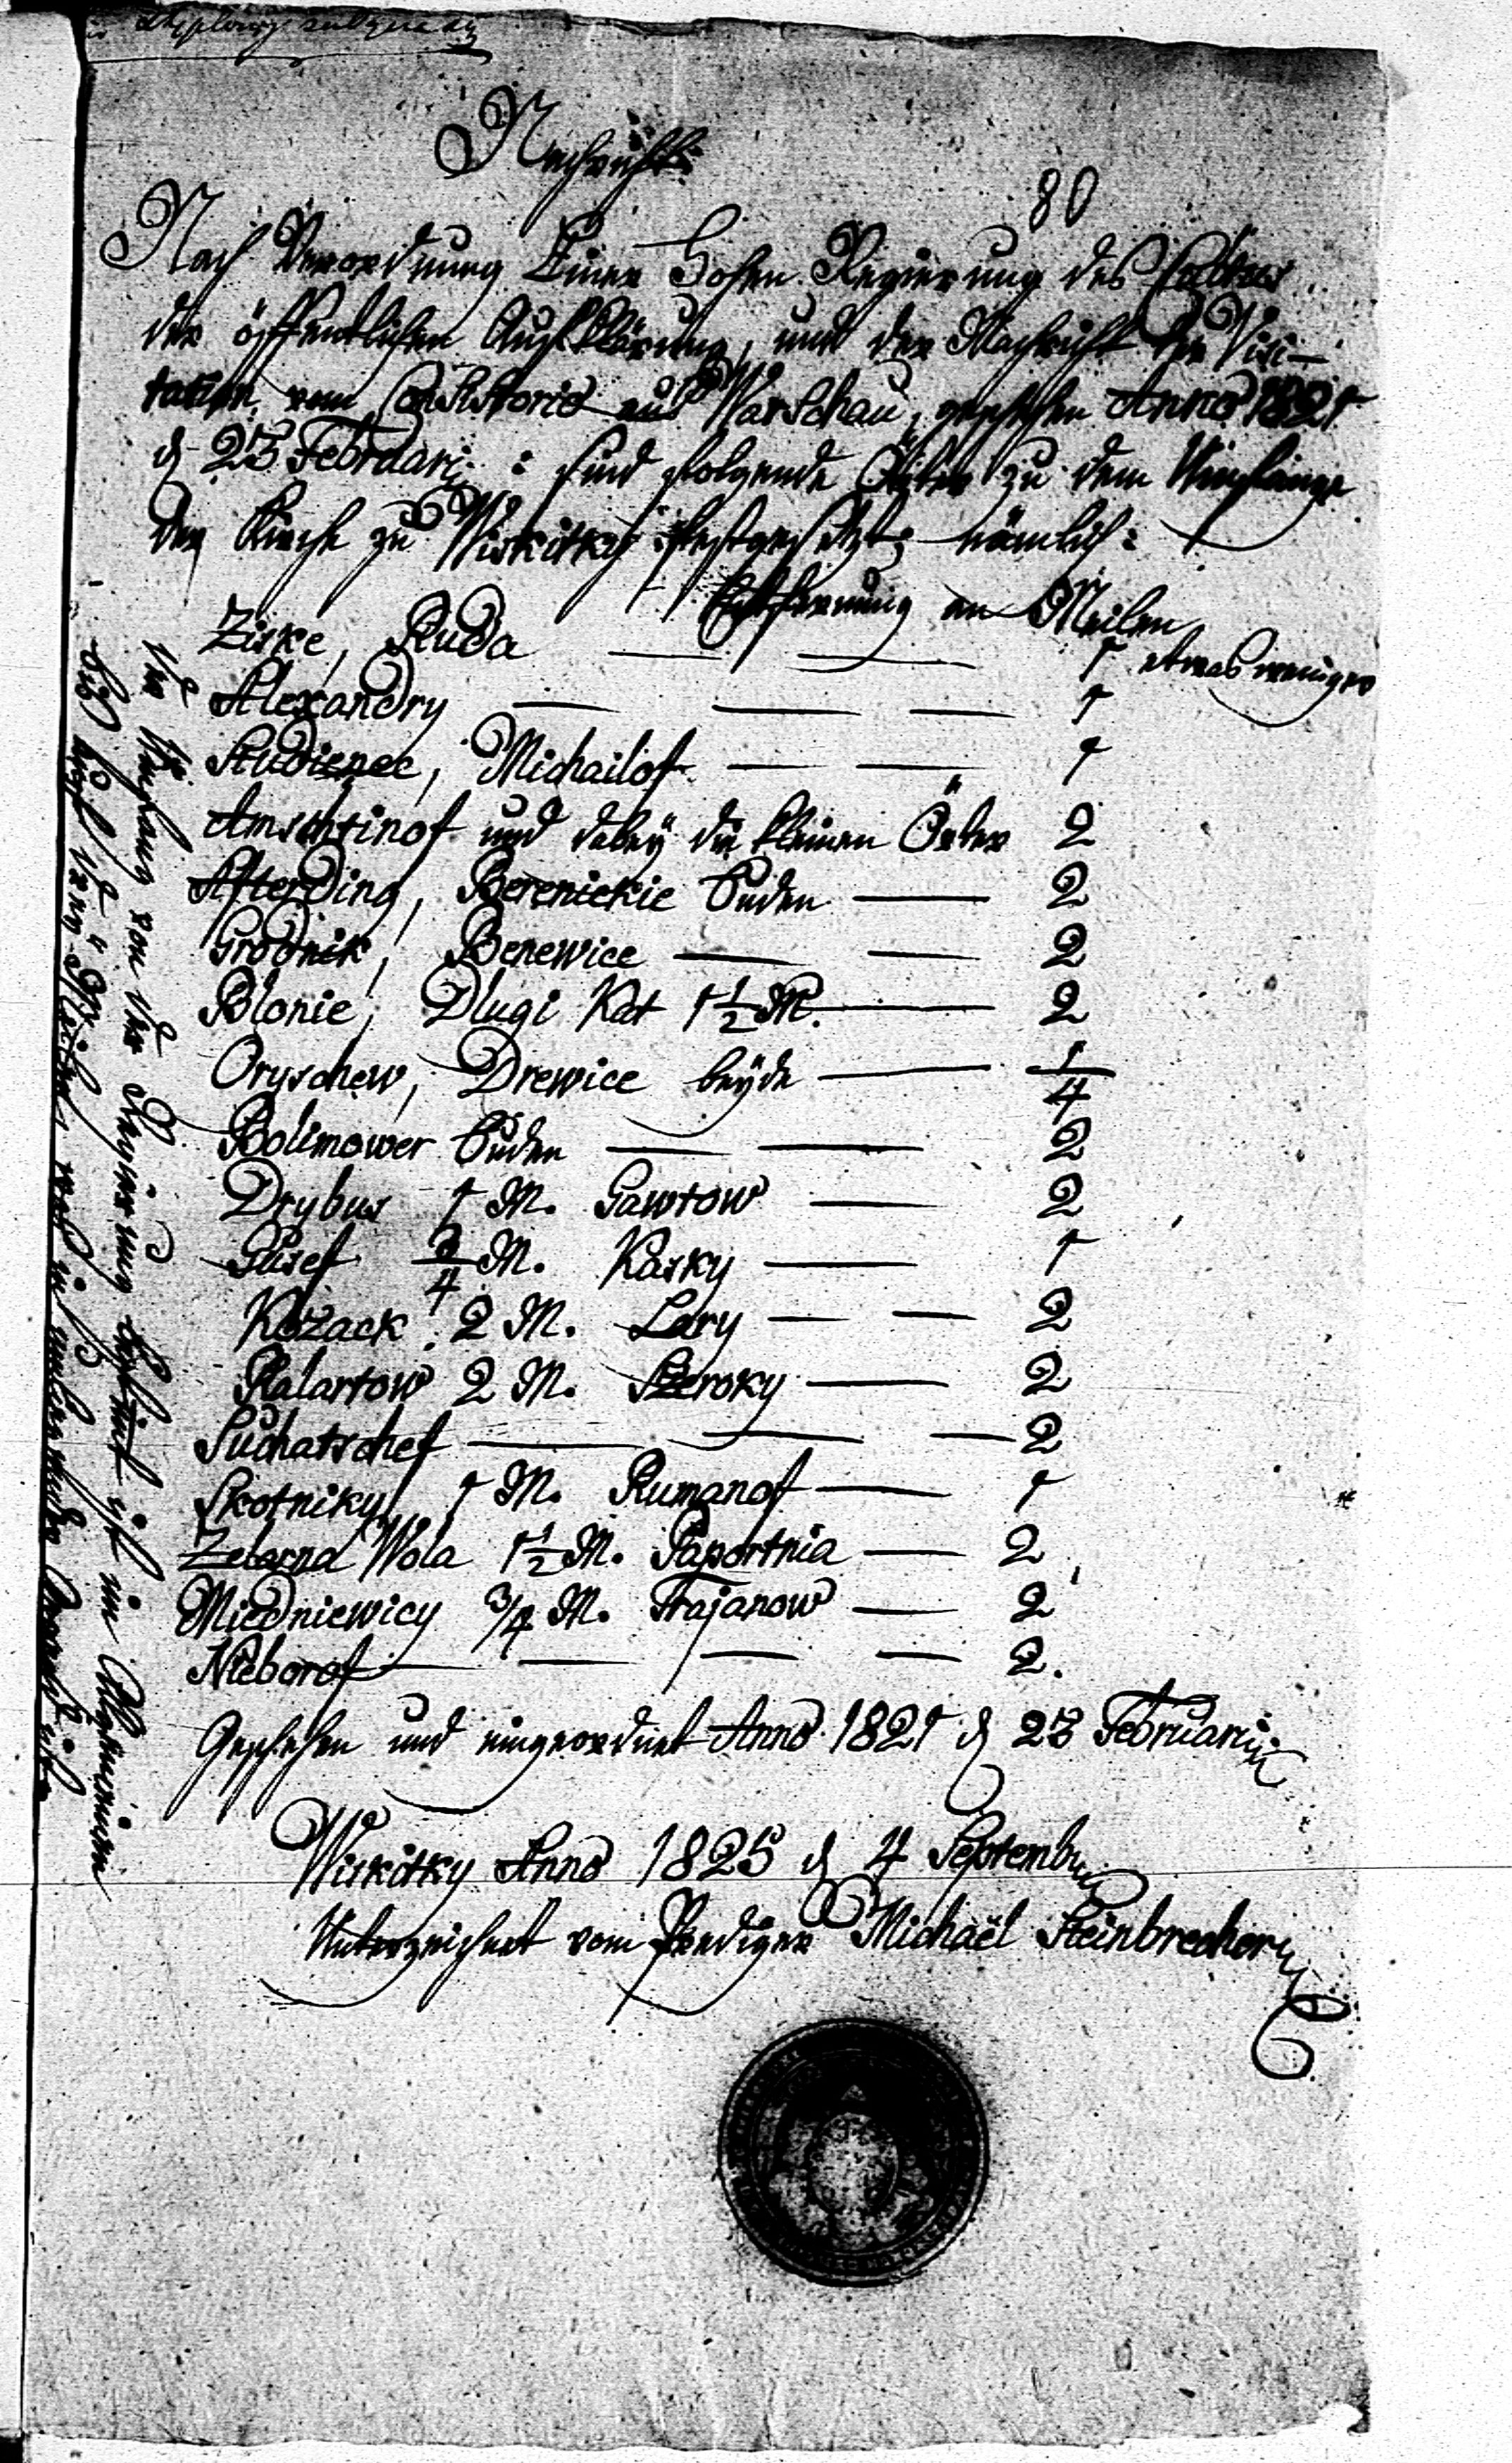 Nachricht
80
Nach Verordnung Einer Hohen Regierung des Cultus
der öffentlichen Aufklärung, und der Nachricht der Visi-
tation vom Consistorio aus Warschau, geschehen Anno 1821
d 23 Februarij: sind folgende Örter zu dem Umfange
der Kirche zu Wiskitky festgesetzt; nämlich:
Entfernung an Meilen
Ziske, Ruda — — 1 etwas weniger
Alexandry — — — 1
Studienec, Michailof — — 1
Amschtinof und dabeÿ die kleinen Örter 2
Afterding, Berenickie Buden — 2
Grodnik, Benewice — — 2
Blonie, Dlugi Kat 1½ M. — 2
Oryschew, Drewice beÿde — 1/4
Bolimower Buden — — 2
Drybus 1 M. Gawtow — 2
Gusef 3/4 M. Kasky — 1
Kozack 2 M. Lary — — 2
Ralartow 2 M. Szeroky — 2
Suchatschef — — — 2
Skotniky 1 M. Rumanof — 1
Zelarna Wola 1½ M. Paportnia — 2
Miedniewicy 3/4 M. Trajanow — 2
Nieborof — — — — 2.
Geschehen und eingeordnet Anno 1821 d 23 Februarij
Wiskitky Anno 1825 d 4 September
Unterzeichnet vom Prediger Michaël Steinbrecher
Der Umfang von der Regierung ist im